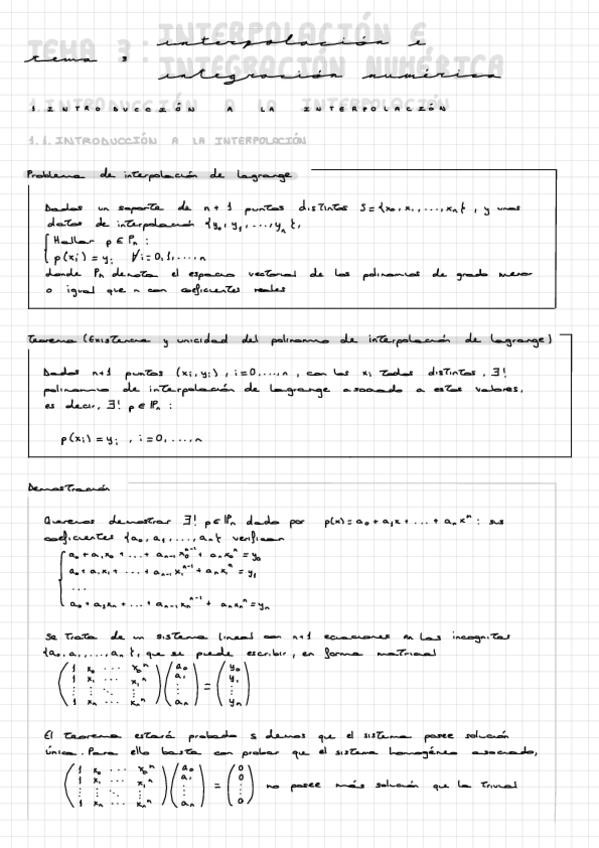 TEMA 3: INTERPOLACIÓN E
INTEGRACIÓN NUMÉRICA
1. INTRODUCCIÓN A LA INTERPOLACIÓN
1.1. INTRODUCCIÓN A LA INTERPOLACIÓN
Problema de interpolación de Lagrange
Dados un soporte de n+1 puntos distintos S={x₀, x₁, ..., xₙ}, y unos
datos de interpolación {y₀, y₁, ..., yₙ},
{ Hallar p ∈ Pₙ :
p(xᵢ) = yᵢ ∀i = 0,1,...,n
donde Pₙ denota el espacio vectorial de los polinomios de grado menor
o igual que n con coeficientes reales
Teorema (Existencia y unicidad del polinomio de interpolación de Lagrange)
Dados n+1 puntos (xᵢ, yᵢ), i=0,...,n, con los xᵢ todos distintos, ∃!
polinomio de interpolación de Lagrange asociado a estos valores,
es decir, ∃! p ∈ ℙₙ :
p(xᵢ) = yᵢ, i=0,...,n
Demostración
Queremos demostrar ∃! p ∈ ℙₙ dado por p(x) = a₀ + a₁x + ... + aₙxⁿ : sus
coeficientes {a₀, a₁, ..., aₙ} verifican
{ a₀ + a₁x₀ + ... + aₙ₋₁x₀ⁿ⁻¹ + aₙx₀ⁿ = y₀
a₀ + a₁x₁ + ... + aₙ₋₁x₁ⁿ⁻¹ + aₙx₁ⁿ = y₁
...
a₀ + a₁xₙ + ... + aₙ₋₁xₙⁿ⁻¹ + aₙxₙⁿ = yₙ
Se trata de un sistema lineal con n+1 ecuaciones en las incógnitas
{a₀, a₁, ..., aₙ}, que se puede escribir, en forma matricial
(1 x₀ ... x₀ⁿ) (a₀) (y₀)
(1 x₁ ... x₁ⁿ) (a₁) = (y₁)
(⋮ ⋮ ⋱ ⋮) (⋮) (⋮)
(1 xₙ ... xₙⁿ) (aₙ) (yₙ)
El teorema estará probado si demos que el sistema posee solución
única. Para ello basta con probar que el sistema homogéneo asociado,
(1 x₀ ... x₀ⁿ) (a₀) (0)
(1 x₁ ... x₁ⁿ) (a₁) = (0) no posee más solución que la trivial
(⋮ ⋮ ⋱ ⋮) (⋮) (⋮)
(1 xₙ ... xₙⁿ) (aₙ) (0)